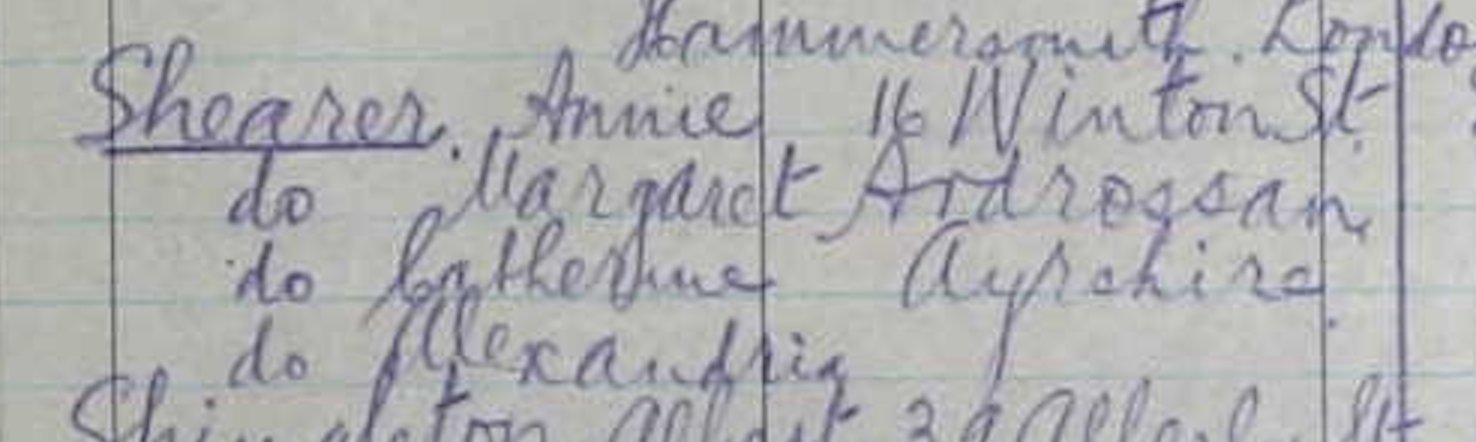 Hammersmith. London
Shearer. Annie 16 Winton St.
do Margaret Ardrossan
do Catherine Ayrshire.
do Alexandria
Albert 39